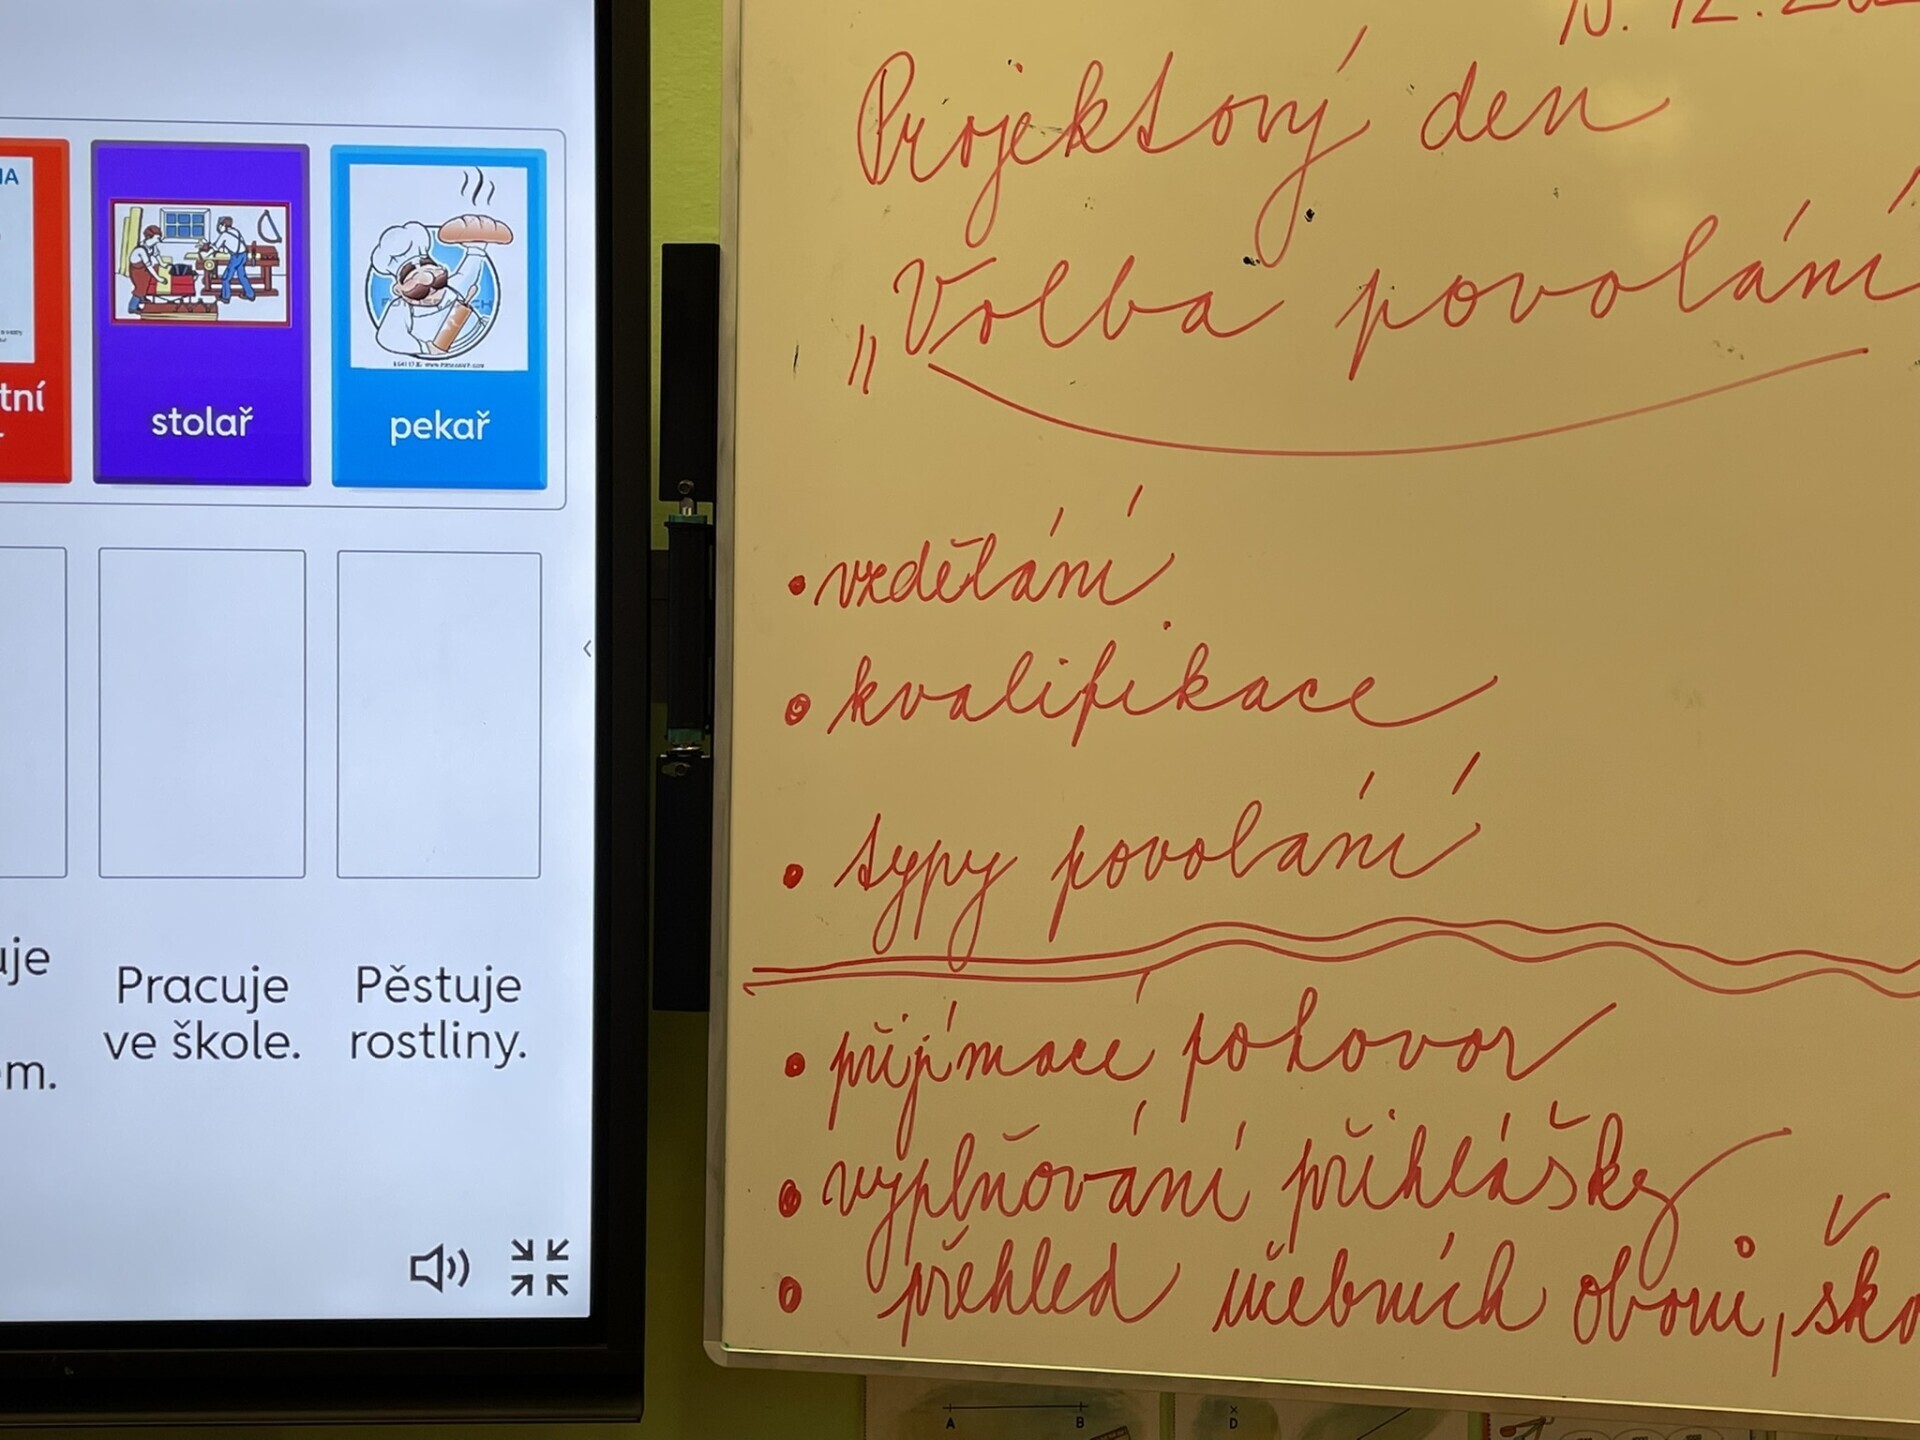 stolař
pekař
tní
Pracuje
ve škole.
Pěstuje
rostliny.
uje
em.
Projektový den
„Volba povolání
• vzdělání
• kvalifikace
• typy povolání
• přijímací pohovor
• vyplňování přihlášky
• přehled učebních oborů, ško
A B
D